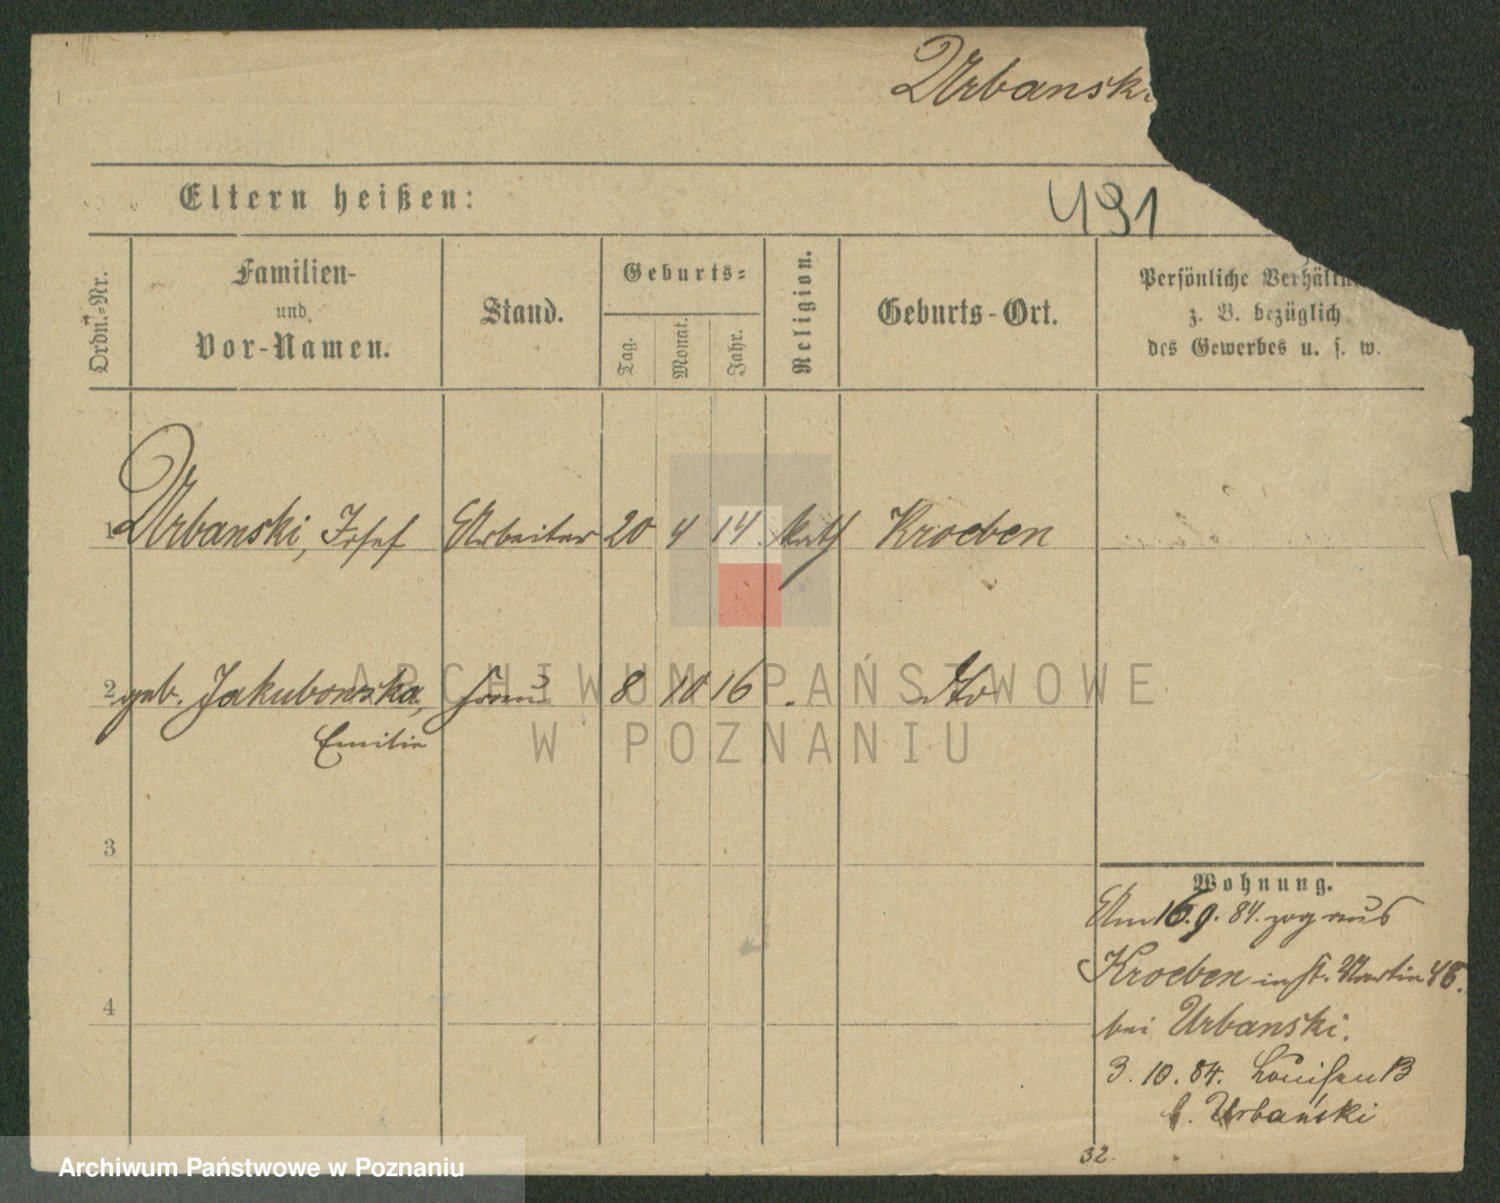 Urbanski
Eltern heißen:
491
Ordn.-Nr.
Familien-
und
Vor-Namen.
Stand.
Geburts-
Tag.
Monat.
Jahr.
Religion.
Geburts-Ort.
Persönliche Verhältn
z. B. bezüglich
des Gewerbes u. s. w.
1 Urbanski, Josef Arbeiter 20 4 14. kath Kroeben
2 geb. Jakubowska, Frau 8 10 16 . dto
Emilie
3
4
Wohnung.
Am 16.9.84. zog aus
Kroeben in St. Martin 48.
bei Urbanski.
3. 10. 84. Louisen
b. Urbański
32.
ARCHIWUM PAŃSTWOWE
W POZNANIU
Archiwum Państwowe w Poznaniu